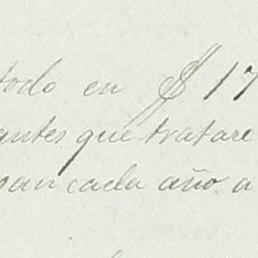 todo en $ 17
antes que tratare
pan cada año a